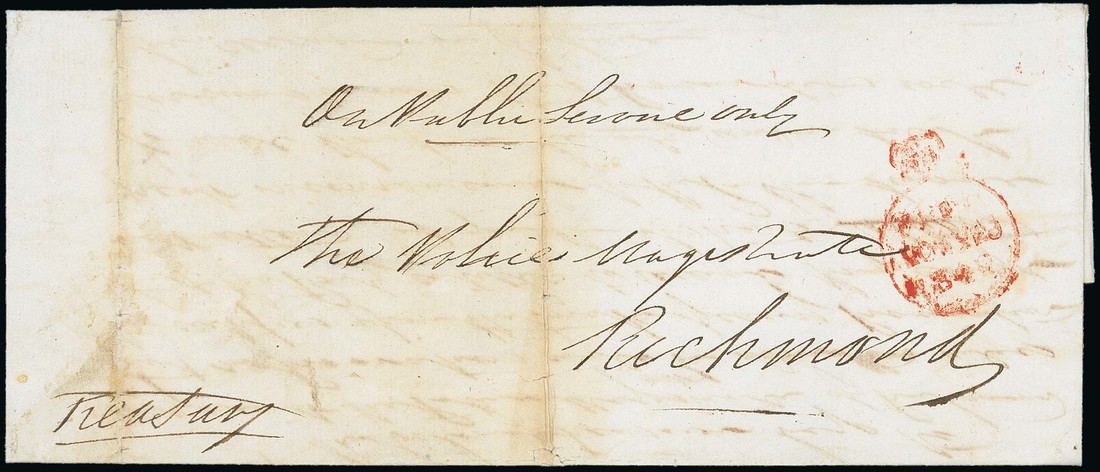 On Public Service only
The Police Magistrate
Richmond
Treasury